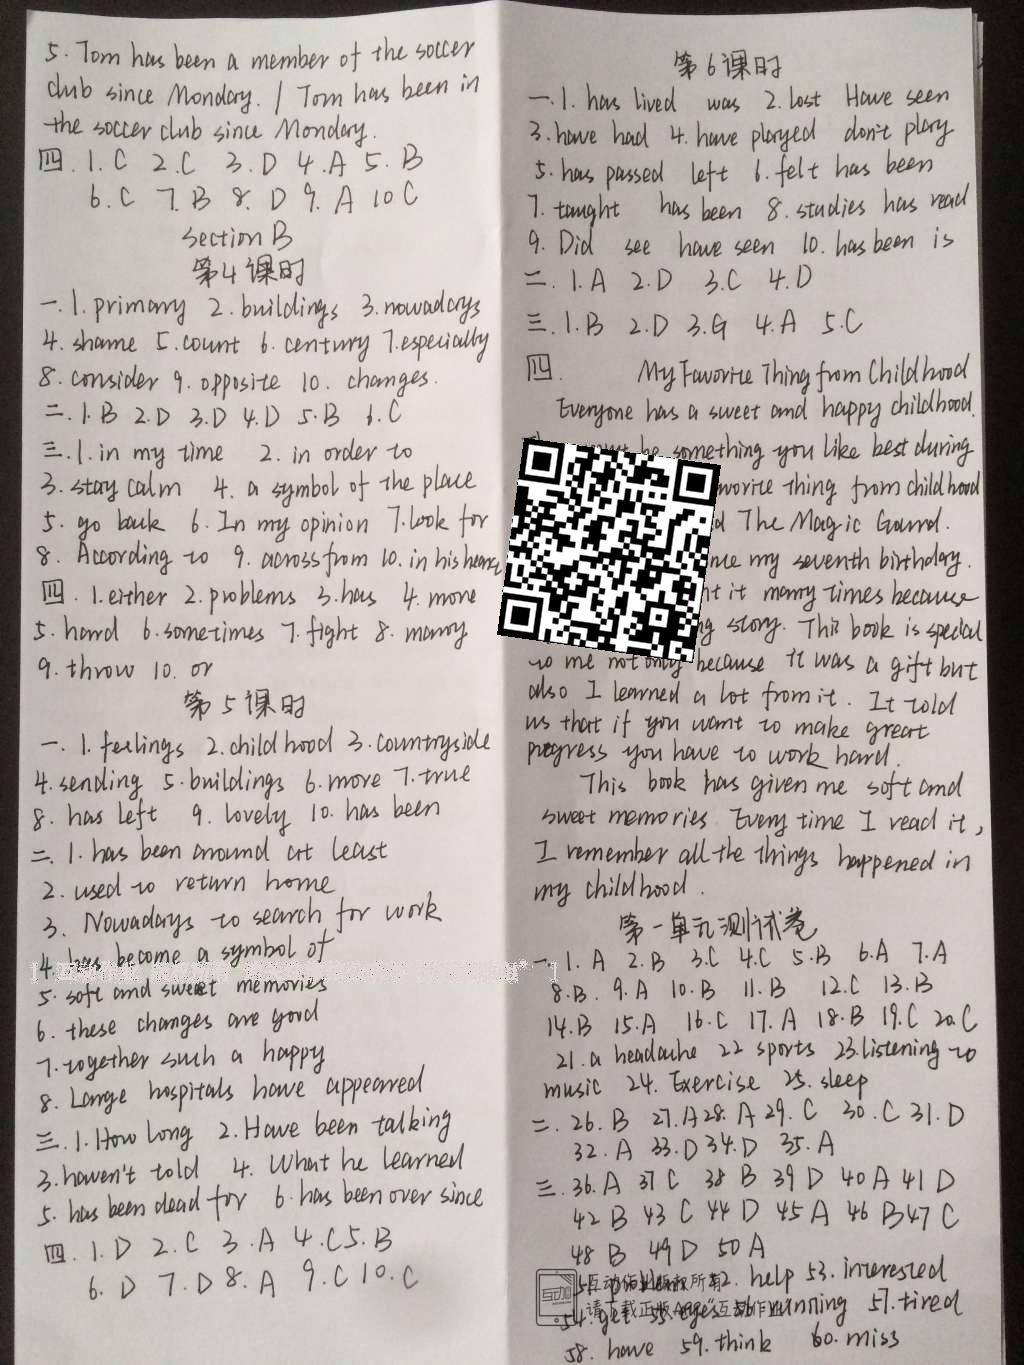 5. Tom has been a member of the soccer
club since Monday. / Tom has been in
the soccer club since Monday.
四. 1. C 2. C 3. D 4. A 5. B
6. C 7. B 8. D 9. A 10 C
Section B
第4课时
一. 1. primary 2. buildings 3. nowadays
4. shame 5. count 6. century 7. especially
8. consider 9. opposite 10. changes.
二. 1. B 2. D 3. D 4. D 5. B 6. C
三. 1. in my time 2. in order to
3. stay calm 4. a symbol of the place
5. go back 6. In my opinion 7. look for
8. According to 9. across from 10. in his
四. 1. either 2. problems 3. has 4. more
5. hard 6. sometimes 7. fight 8. many
9. throw 10. or
第5课时
一. 1. feelings 2. childhood 3. countryside
4. sending 5. buildings 6. more 7. true
8. has left 9. lovely 10. has been
二. 1. has been around at least
2. used to return home
3. Nowadays to search for work
4. has become a symbol of
5. soft and sweet memories
6. these changes are good
7. together such a happy
8. Large hospitals have appeared
三. 1. How long 2. Have been talking
3. haven't told 4. What he learned
5. has been dead for 6. has been over since
四. 1. D 2. C 3. A 4. C 5. B
6. D 7. D 8. A 9. C 10. C
第6课时
一. 1. has lived was 2. lost Have seen
3. have had 4. have played don't play
5. has passed left 6. felt has been
7. taught has been 8. studies has read
9. Did see have seen 10. has been is
二. 1. A 2. D 3. C 4. D
三. 1. B 2. D 3. G 4. A 5. C
四. My Favorite Thing from Childhood
Everyone has a sweet and happy childhood.
be something you like best during
thing from childhood
The Magic Gourd.
my seventh birthday.
it many times because
story. This book is special
to me not only because it was a gift but
also I learned a lot from it. It told
us that if you want to make great
progress you have to work hard.
This book has given me soft and
sweet memories Every time I read it,
I remember all the things happened in
my childhood.
第一单元测试卷
一. 1. A 2. B 3. C 4. C 5. B 6. A 7. A
8. B. 9. A 10. B 11. B 12. C 13. B
14. B 15. A 16. C 17. A 18. B 19. C 20. C
21. a headache 22 sports 23. listening to
music 24. Exercise 25. sleep
二. 26. B 27. A 28. A 29. C 30. C 31. D
32. A 33. D 34. D 35. A
三. 36. A 37 C 38 B 39 D 40 A 41 D
42 B 43 C 44 D 45 A 46 B 47 C
48 B 49 D 50 A
互动作业版权所有 help 53. interested
请下载正版APP“互动作业” running 57. tired
58. have 59. think 60. miss